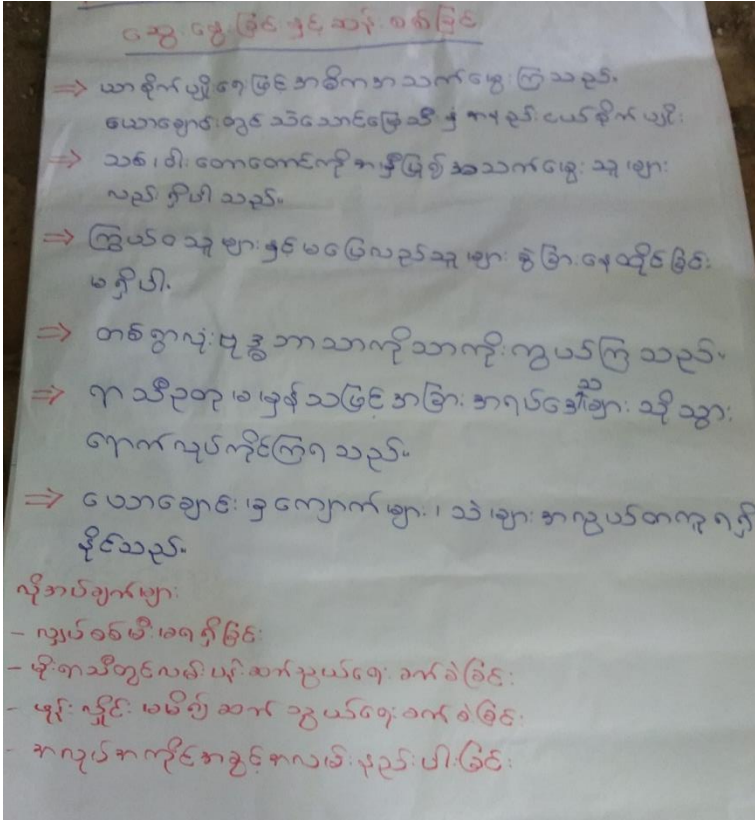 ဆွေးနွေးခြင်းနှင့်ဆန်းစစ်ခြင်း
⇒ ယာစိုက်ပျိုးရေးဖြင့်အဓိကအသက်မွေးကြသည်။
ယောချောင်းတွင်သဲသောင်မြေသီးနှံအနည်းငယ်စိုက်ပျိုး
⇒ သစ်၊ ဝါးတောတောင်ကိုအမှီပြု၍အသက်မွေးသူများ
လည်းရှိပါသည်။
⇒ ကြွယ်ဝသူများနှင့်မပြေလည်သူများခွဲခြားနေထိုင်ခြင်း
မရှိပါ။
⇒ တစ်ရွာလုံးဗုဒ္ဓဘာသာကိုသာကိုးကွယ်ကြသည်။
⇒ ရာသီဥတုမမှန်သဖြင့်အခြားအရပ်ဒေသများသို့သွား
ရောက်လုပ်ကိုင်ကြရသည်။
⇒ ယောချောင်းမှကျောက်များ၊ သဲများအလွယ်တကူရရှိ
နိုင်သည်။
လိုအပ်ချက်များ
- လျှပ်စစ်မီးမရရှိခြင်း
- မိုးရာသီတွင်လမ်းပန်းဆက်သွယ်ရေးခက်ခဲခြင်း
- ဖုန်းလှိုင်းမမိ၍ဆက်သွယ်ရေးခက်ခဲခြင်း
- အလုပ်အကိုင်အခွင့်အလမ်းနည်းပါးခြင်း